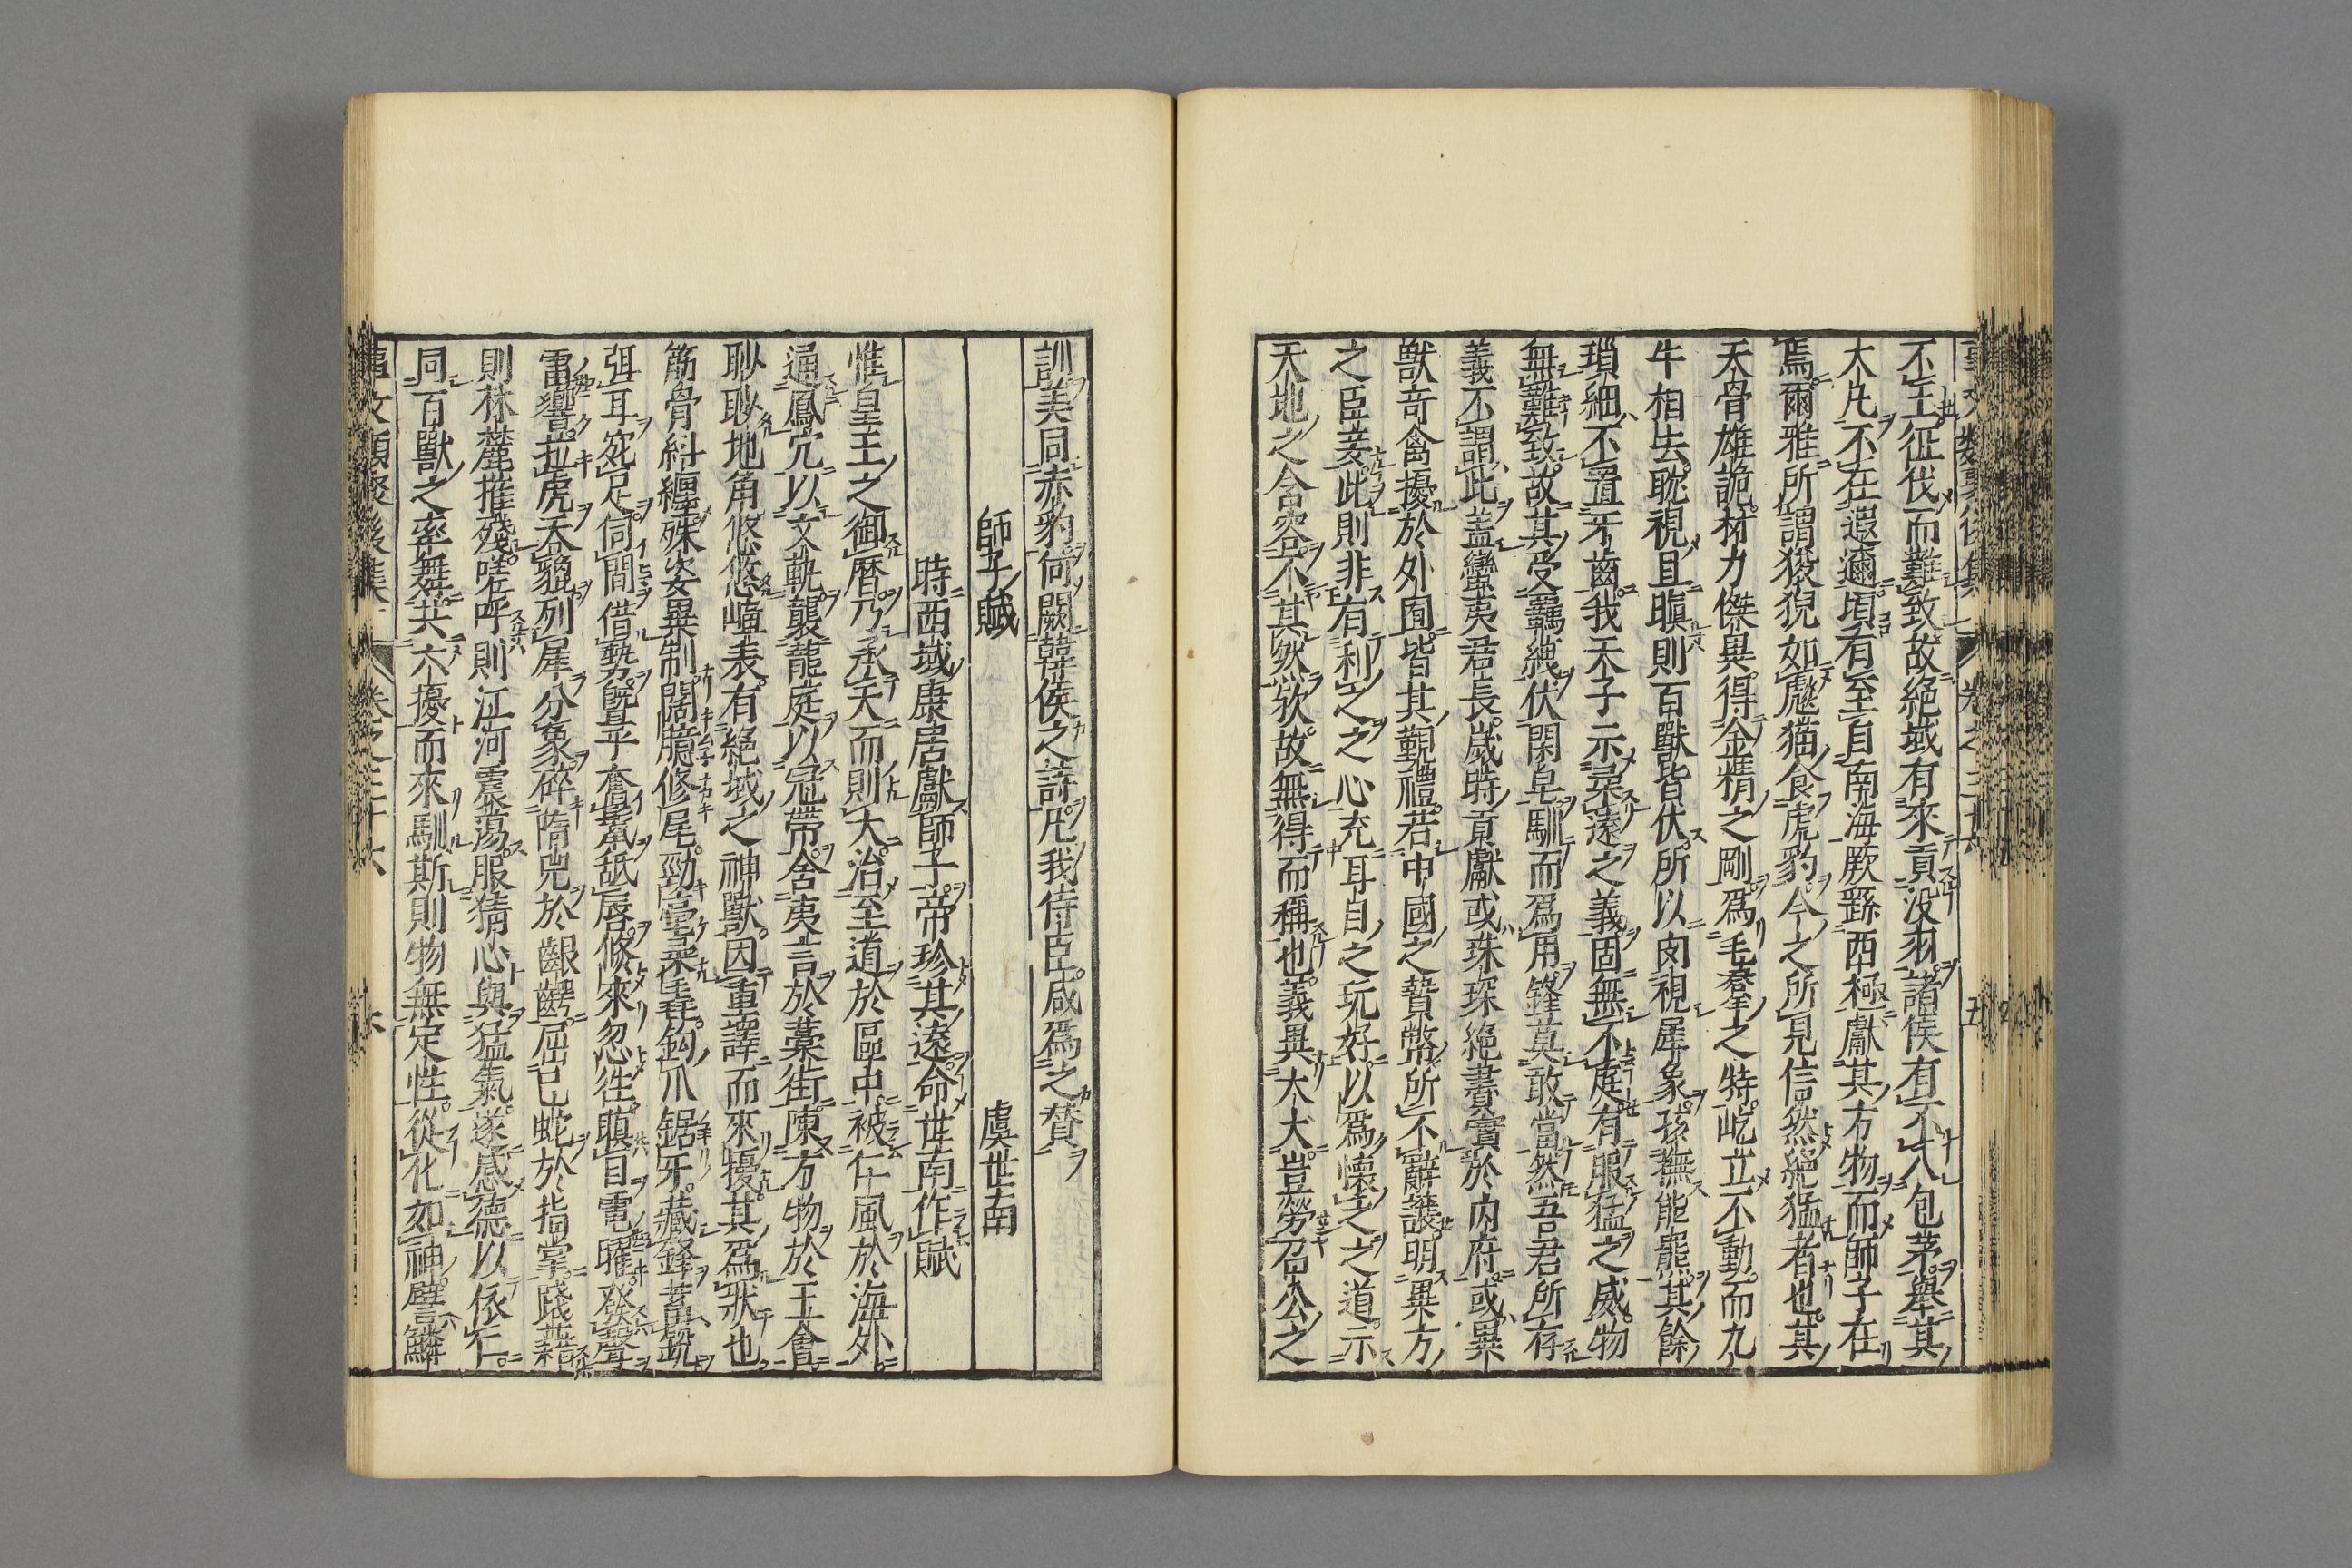 不王征伐而難致故絕域有來貢没羽諸侯有不入包茅舉其
大凡不在遐邇頃有至自南海厥繇西極獻其方物而師子在
焉爾雅所謂狻猊如彪猫食虎豹今之所見信然絕猛者也其
天骨雄詭材力傑異得金精之剛爲毛羣之特屹立不動而九
牛相去眈視且瞋則百獸皆伏所以肉視犀象孩撫熊羆其餘
瑣細不置牙齒我天子示柔遠之義固無不庭有服猛之威物
無難致故其受羈紲伏閑皁馴而爲用鋒莫敢當然吾君所存
義不謂此盖蠻夷君長歲時貢獻或珠琛絕賮實於内府或異
獸奇禽擾於外囿皆其覲禮若中國之贄幣所不辭讓明異方
之臣妾此則非有利之之心充耳目之玩好以爲懷之之道示
天地之含容不其然歟故無得而稱也義異大犬豈勞召公之
訓美同赤豹何闕韓侯之詩凡我侍臣咸爲之賛
師子賦　虞世南
時西域康居獻師子帝珍其遠命世南作賦
惟皇王之御曆乃承天而則大治至道於區中被仁風於海外
通鳳穴以文軌襲龍庭以冠帶舍夷言於藁街陳方物於王會
眇眇地角悠悠嶂表有絕域之神獸因重譯而來擾其爲狀也
筋骨糾纏殊姿異制闊臆修尾勁毫柔毳鈎爪鋸牙藏鋒蓄鋭
弭耳宛足伺間借勢曁乎奮鬣舐唇倐來忽徃瞋目電曜發聲
雷響拉虎吞貔列犀分象碎隋兕於齦齶屈巴蛇於指掌踐藉
則林麓摧殘哮呼則江河震蕩服猜心與猛氣遂感德以依仁
同百獸之率舞共六擾而來馴斯則物無定性從化如神譬鱗